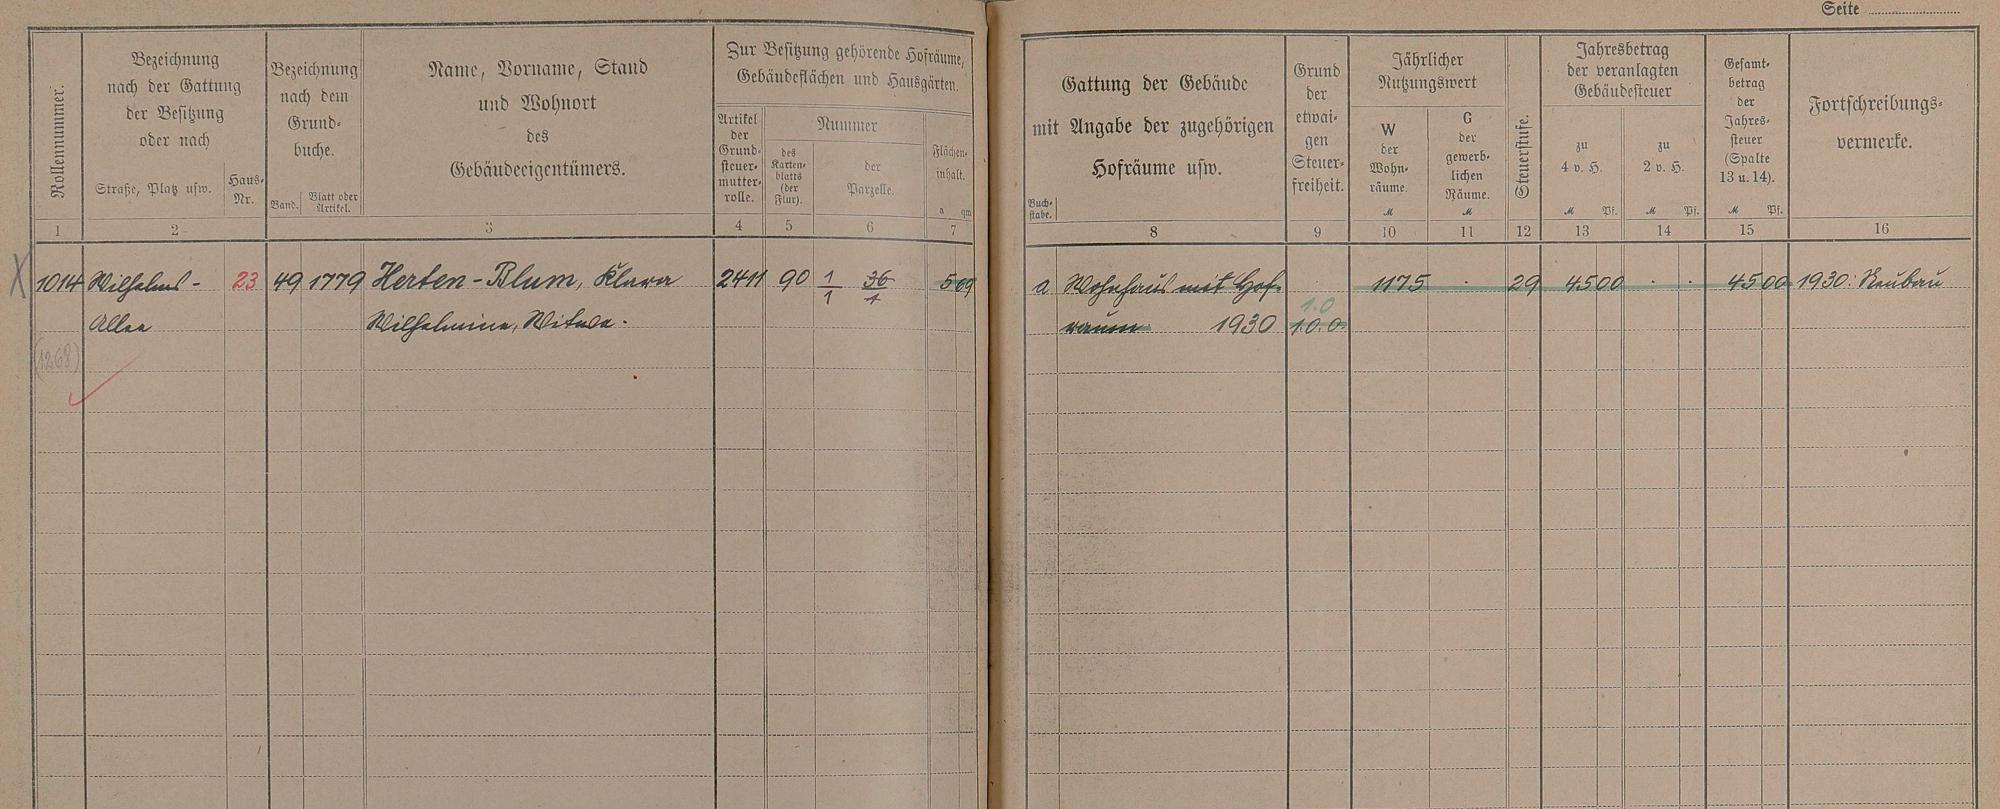 Seite
Rollennummer.
Bezeichnung
nach der Gattung
der Besitzung
oder nach
Straße, Platz usw.
Haus-
Nr.
Bezeichnung
nach dem
Grund-
buche.
Band.
Blatt oder
Artikel.
Name, Vorname, Stand
und Wohnort
des
Gebäudeeigentümers.
Zur Besitzung gehörende Hofräume,
Gebäudeflächen und Hausgärten.
Artikel
der
Grund-
steuer-
mutter-
rolle.
Nummer
des
Karten-
blatts
(der
Flur).
der
Parzelle.
Flächen-
inhalt.
a qm
Gattung der Gebäude
mit Angabe der zugehörigen
Hofräume usw.
Buch-
stabe.
Grund
der
etwai-
gen
Steuer-
freiheit.
Jährlicher
Nutzungswert
W
der
Wohn-
räume.
M
G
der
gewerb-
lichen
Räume.
M
Steuerstufe.
Jahresbetrag
der veranlagten
Gebäudesteuer
zu
4 v. H.
M Pf.
zu
2 v. H.
M Pf.
Gesamt-
betrag
der
Jahres-
steuer
(Spalte
13 u. 14).
M Pf.
Fortschreibungs-
vermerke.
1 2 3 4 5 6 7 8 9 10 11 12 13 14 15 16
X 1014 Wilhelms- 23 49 1779 Herten-Blum, Klara 2411 90 1/1 36/1 5 09 a Wohnhaus mit Hof- 1175 · 29 45 00 · · 45 00 1930: Neubau
1.0
Allee Wilhelmine, Witwe. raum 1930 10.0.
(1268)